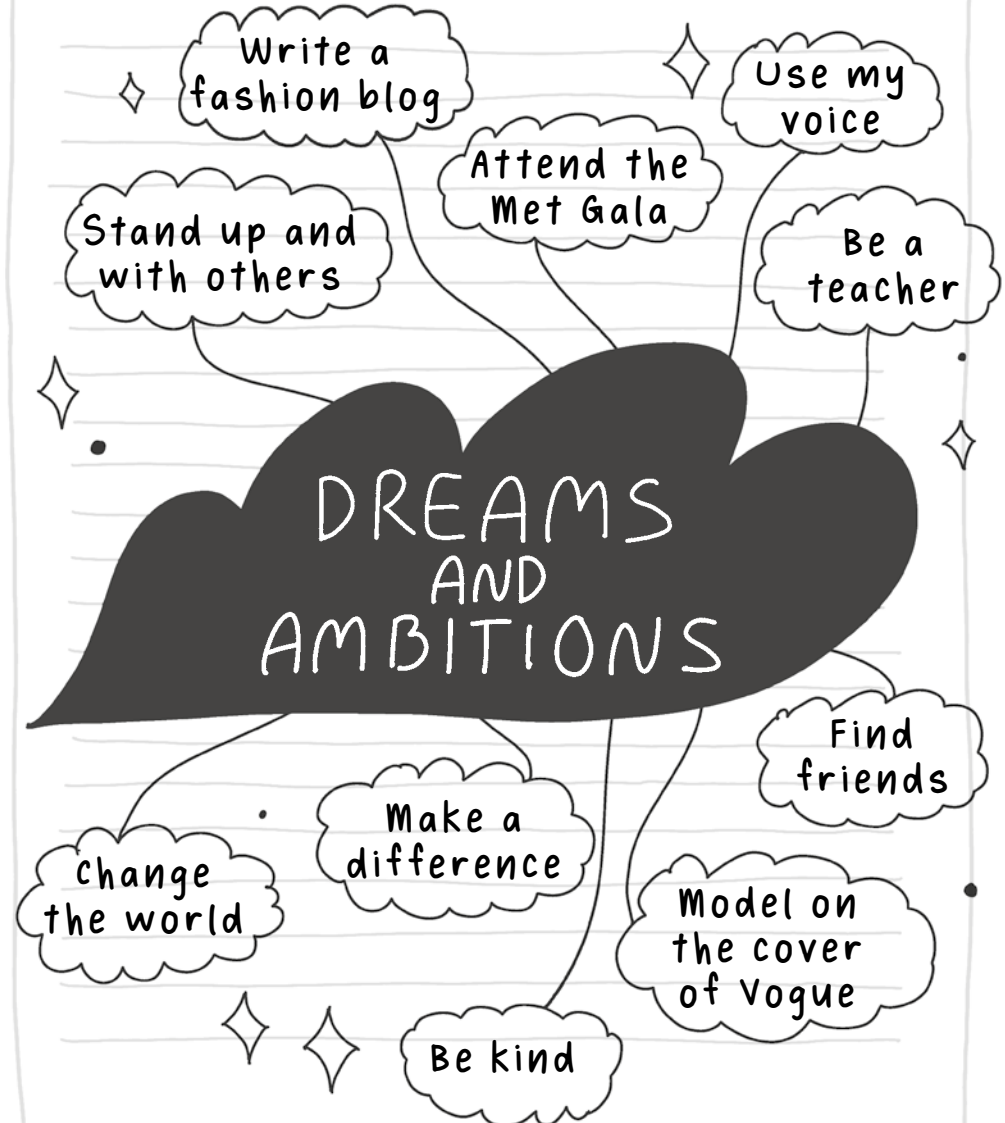 Write a
fashion blog
Use my
voice
Attend the
Met Gala
Stand up and
with others
Be a
teacher
DREAMS
AND
AMBITIONS
Find
friends
Make a
difference
Change
the world
Model on
the cover
of Vogue
Be kind